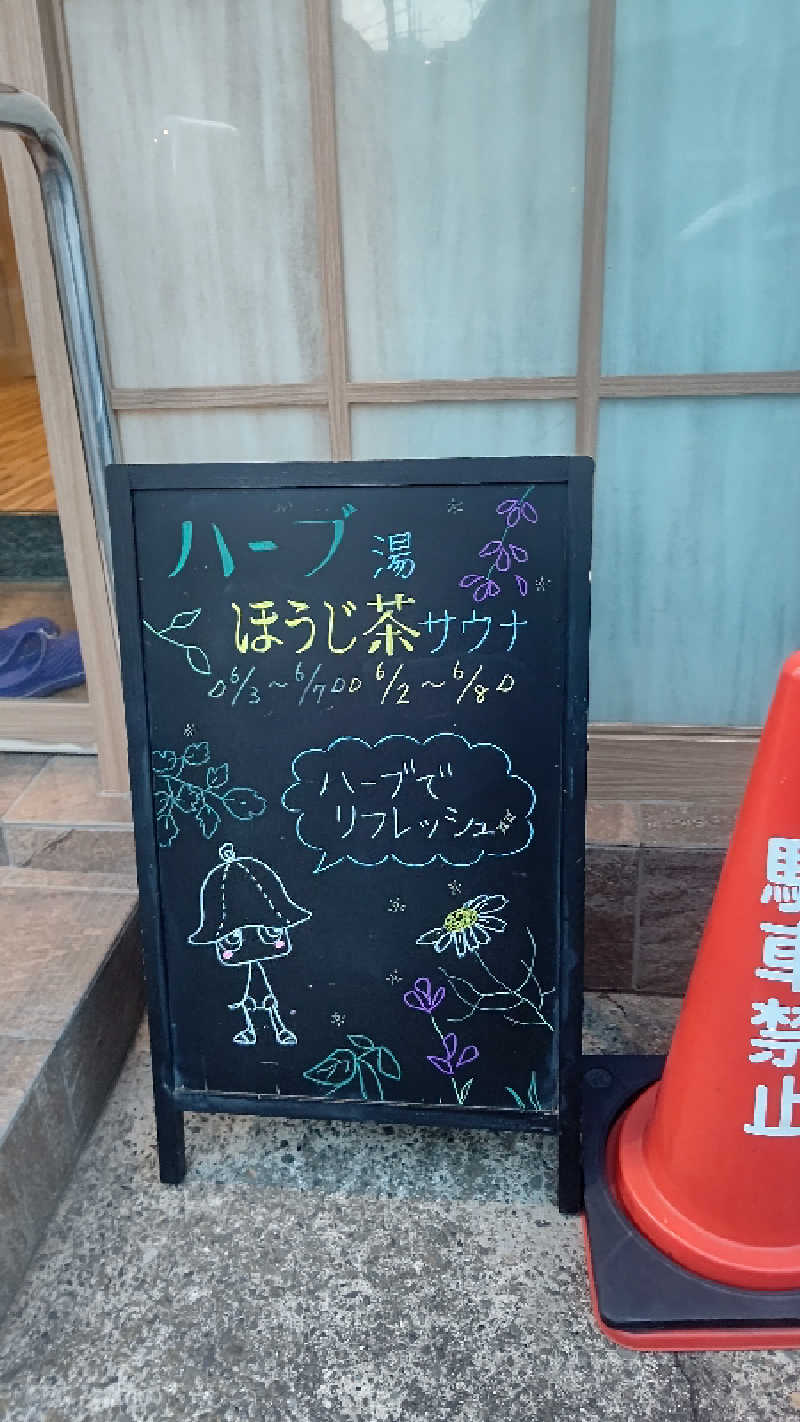 ハーブ湯
ほうじ茶サウナ
6/3〜6/7 6/2〜6/8
ハーブで
リフレッシュ
駐車禁止